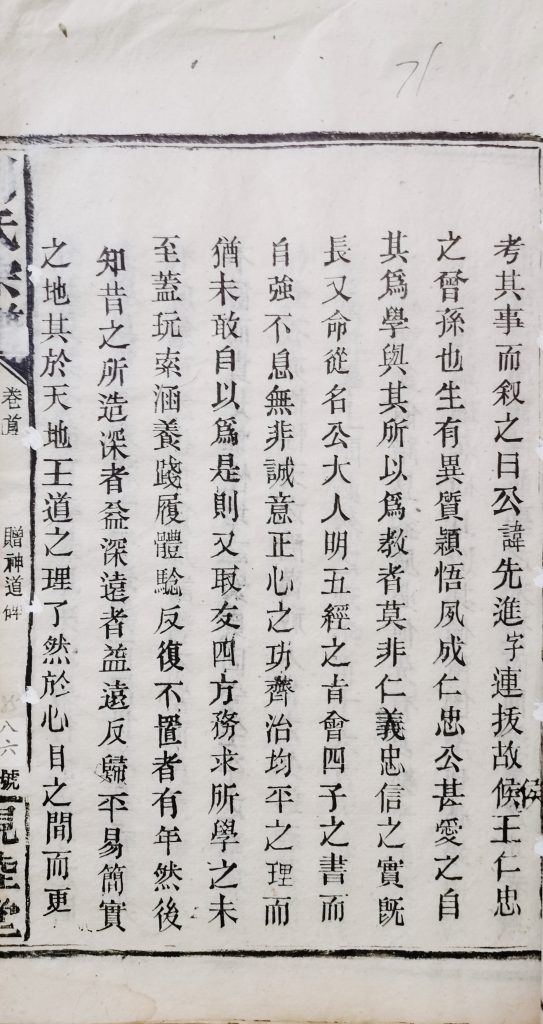 考其事而叙之曰公諱先進字連拔故候王仁忠
侯
之曾孫也生有異質穎悟夙成仁忠公甚愛之自
其爲學與其所以爲教者莫非仁義忠信之實旣
長又命從名公大人明五經之旨會四子之書而
自強不息無非誠意正心之功齊治均平之理而
猶未敢自以爲是則又取友四方務求所學之未
至蓋玩索涵養踐履體騐反復不置者有年然後
知昔之所造深者益深遠者益遠反歸平易簡實
之地其於天地王道之理了然於心目之間而更
氏宗譜
卷首
贈神道碑
八六
號